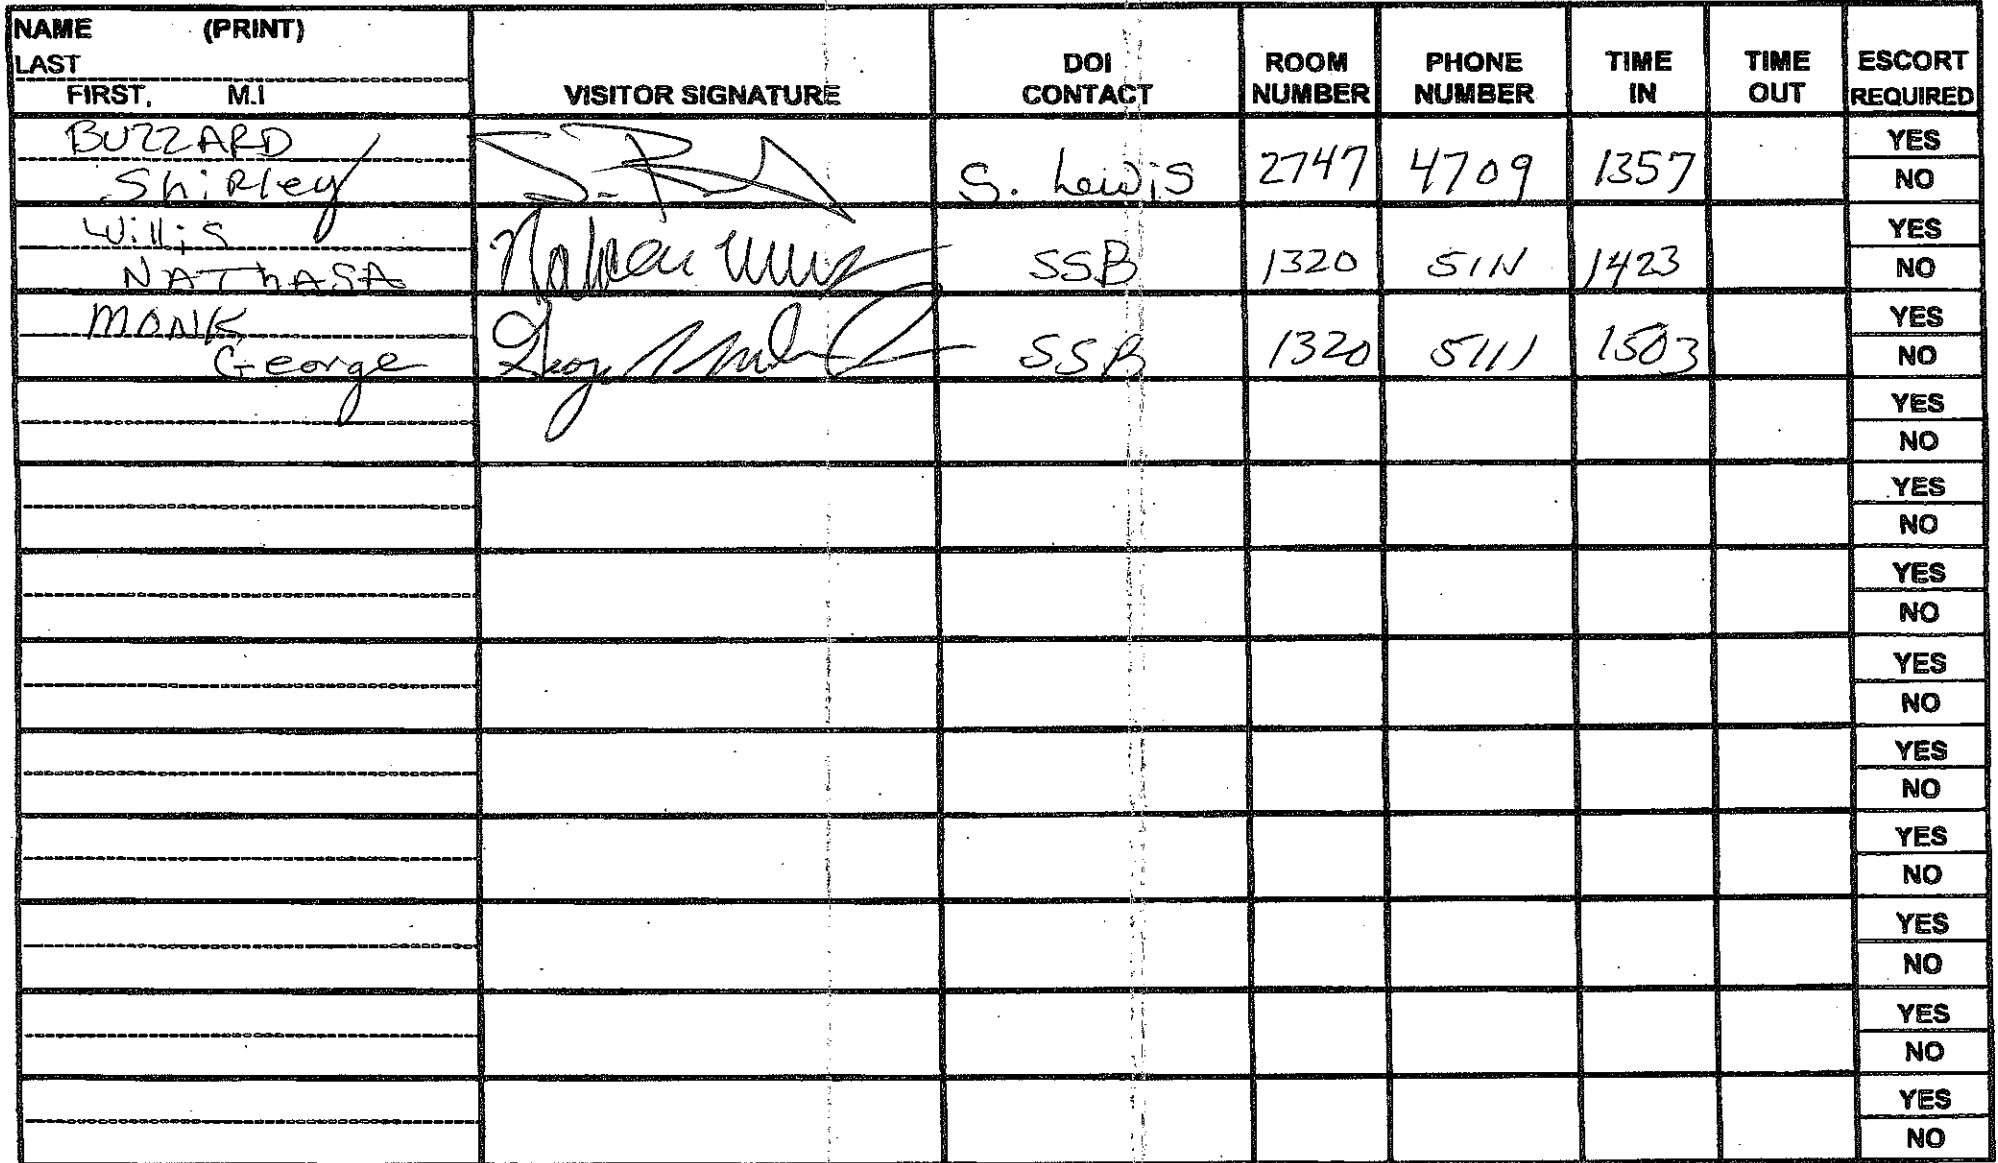 NAME (PRINT)
LAST
FIRST, M.I
VISITOR SIGNATURE
DOI CONTACT
ROOM NUMBER
PHONE NUMBER
TIME IN
TIME OUT
ESCORT REQUIRED
BUZZARD
Shirley
S. Lewis 2747 4709 1357 YES
NO
Willis
NAThASA
SSB 1320 5111 1423 YES
NO
MONK
George
SSB 1320 5111 1503 YES
NO
YES
NO
YES
NO
YES
NO
YES
NO
YES
NO
YES
NO
YES
NO
YES
NO
YES
NO